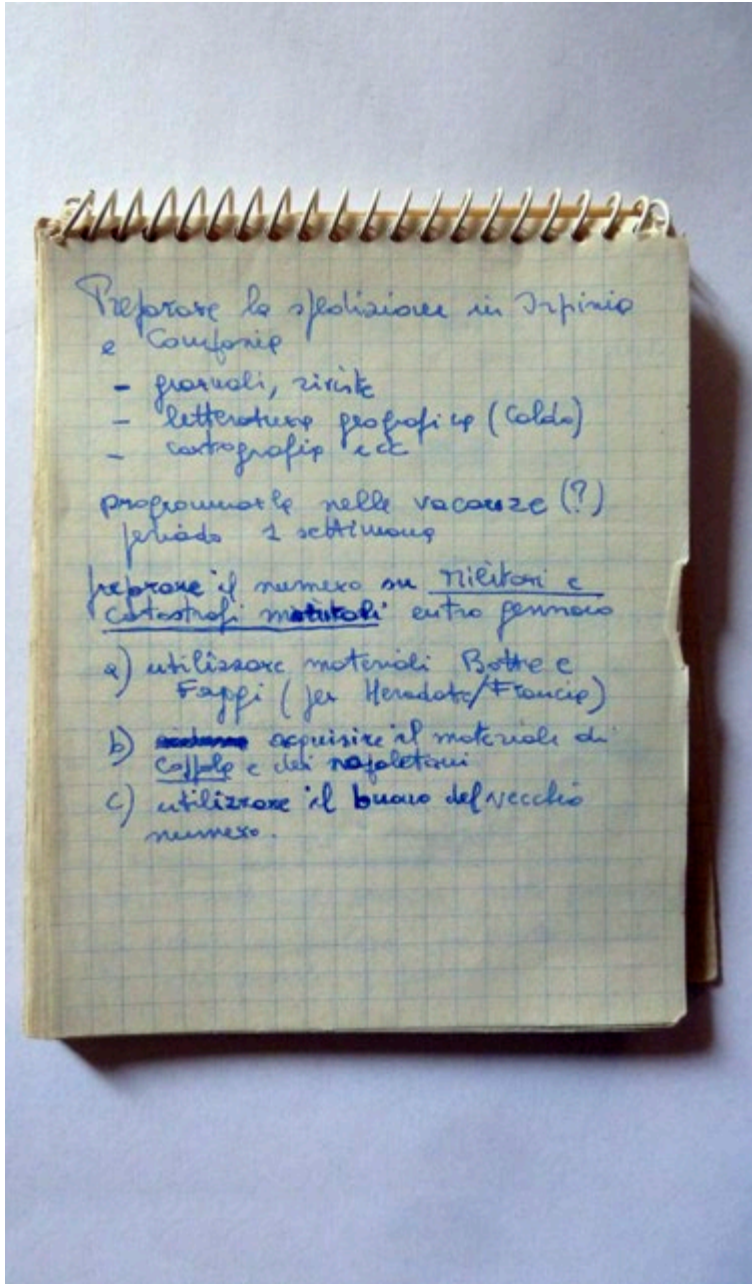 Preparare la spedizione in Irpinia
e Campania
- giornali, riviste
- letteratura geografica (Caldo)
- cartografia ecc
programmarla nelle vacanze (?)
periodo 1 settimana
preparare il numero su Militari e
Catastrofi naturali entro gennaio
a) utilizzare materiali Botte e
Faggi (per Herodote/Francia)
b) acquisire il materiale di
Coppola e dei napoletani
c) utilizzare il buono del vecchio
numero.